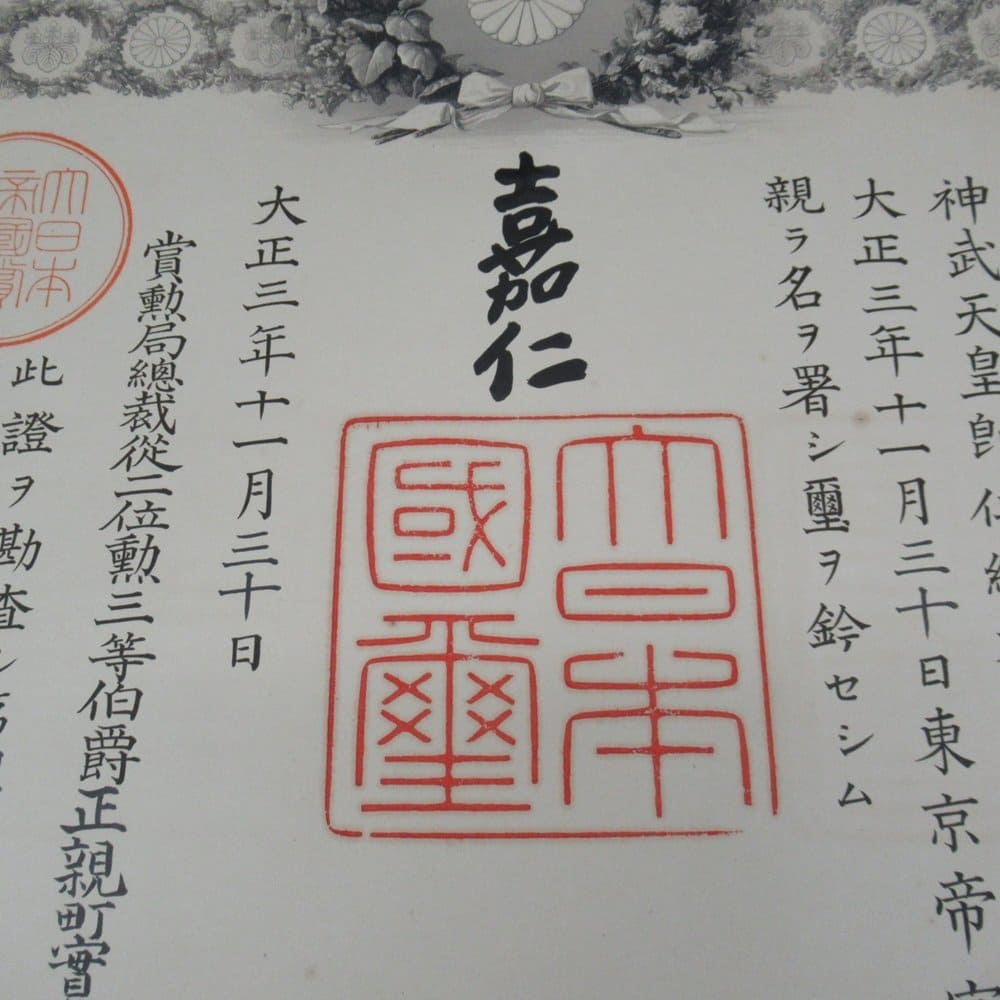 神武天皇即位紀
大正三年十一月三十日東京帝
親ラ名ヲ署シ璽ヲ鈐セシム
嘉仁
大日本
國璽
大正三年十一月三十日
賞勲局總裁從二位勲三等伯爵正親町實
大日本
帝國賞
此證ヲ勘査シ